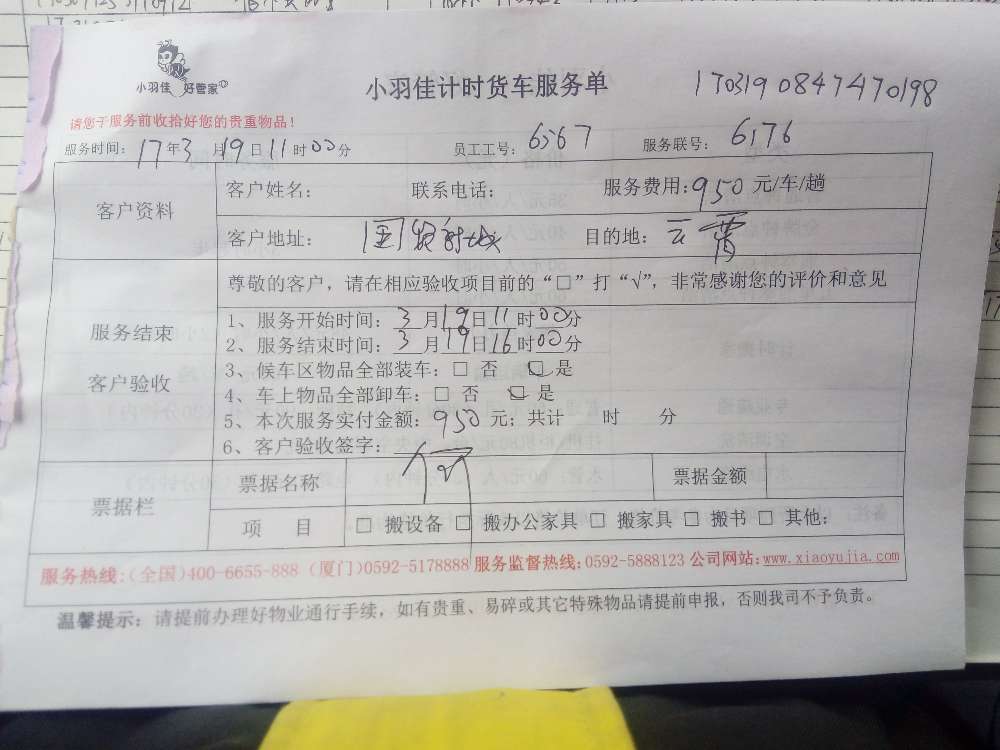 小羽佳 好管家
小羽佳计时货车服务单
170319 0847470198
请您于服务前收拾好您的贵重物品！
服务时间：17年3月19日11时00分 员工工号：6567 服务联号：6176
客户资料
客户姓名： 联系电话： 服务费用：950元/车/趟
客户地址：国贸新城 目的地：云霄
尊敬的客户，请在相应验收项目前的“□”打“√”，非常感谢您的评价和意见
服务结束
客户验收
1、服务开始时间：3月19日11时00分
2、服务结束时间：3月19日16时00分
3、候车区物品全部装车：□ 否 □是
4、车上物品全部卸车：□ 否 □ 是
5、本次服务实付金额：950元；共计 时 分
6、客户验收签字：
票据栏
票据名称 票据金额
项 目 □ 搬设备 □ 搬办公家具 □ 搬家具 □ 搬书 □ 其他：
服务热线：（全国）400-6655-888（厦门）0592-5178888 服务监督热线：0592-5888123 公司网站：www.xiaoyujia.com
温馨提示：请提前办理好物业通行手续，如有贵重、易碎或其它特殊物品请提前申报，否则我司不予负责。